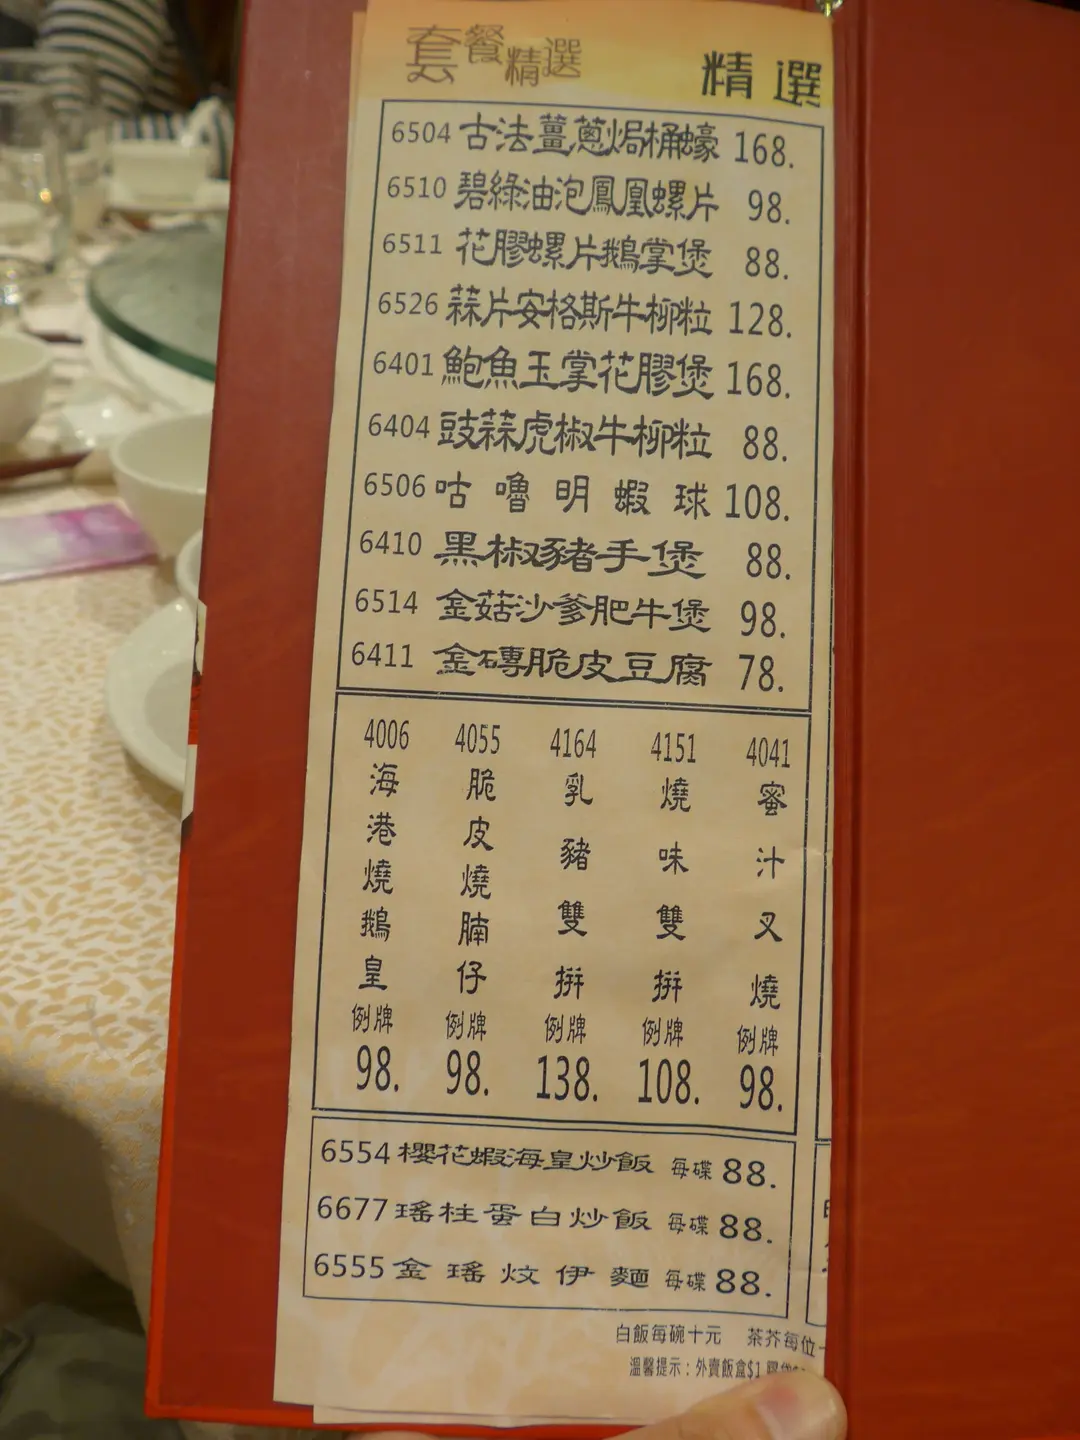 套餐精選
精選
6504 古法薑蔥焗桶蠔 168.
6510 碧綠油泡鳳凰螺片 98.
6511 花膠螺片鵝掌煲 88.
6526 蒜片安格斯牛柳粒 128.
6401 鮑魚玉掌花膠煲 168.
6404 豉蒜虎椒牛柳粒 88.
6506 咕嚕明蝦球 108.
6410 黑椒豬手煲 88.
6514 金菇沙爹肥牛煲 98.
6411 金磚脆皮豆腐 78.
4006 海港燒鵝皇 例牌 98.
4055 脆皮燒腩仔 例牌 98.
4164 乳豬雙拼 例牌 138.
4151 燒味雙拼 例牌 108.
4041 蜜汁叉燒 例牌 98.
6554 櫻花蝦海皇炒飯 每碟 88.
6677 瑤柱蛋白炒飯 每碟 88.
6555 金瑤炆伊麵 每碟 88.
白飯每碗十元 茶芥每位
溫馨提示：外賣飯盒$1